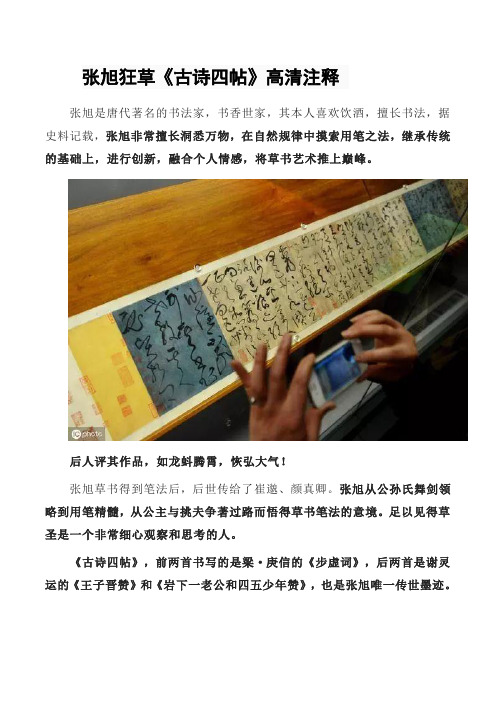 张旭狂草《古诗四帖》高清注释
张旭是唐代著名的书法家，书香世家，其本人喜欢饮酒，擅长书法，据
史料记载，张旭非常擅长洞悉万物，在自然规律中摸索用笔之法，继承传统
的基础上，进行创新，融合个人情感，将草书艺术推上巅峰。
photo
后人评其作品，如龙蚪腾霄，恢弘大气！
张旭草书得到笔法后，后世传给了崔邈、颜真卿。张旭从公孙氏舞剑领
略到用笔精髓，从公主与挑夫争著过路而悟得草书笔法的意境。足以见得草
圣是一个非常细心观察和思考的人。
《古诗四帖》，前两首书写的是梁·庾信的《步虚词》，后两首是谢灵
运的《王子晋赞》和《岩下一老公和四五少年赞》，也是张旭唯一传世墨迹。